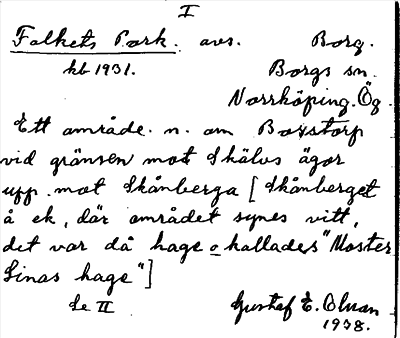 I
Folkets Park. avs. Borg.
hb 1931. Borgs sn.
Norrköping. Ög.
Ett område. n. om Boxstorp
vid gränsen mot Skälvs ägor
upp. mot Skånberga [ Skånberget
å ek, där området synes vitt,
det var då hage o kallades "Moster
Linas hage"]
Se II Gustaf E. Olman
1938.